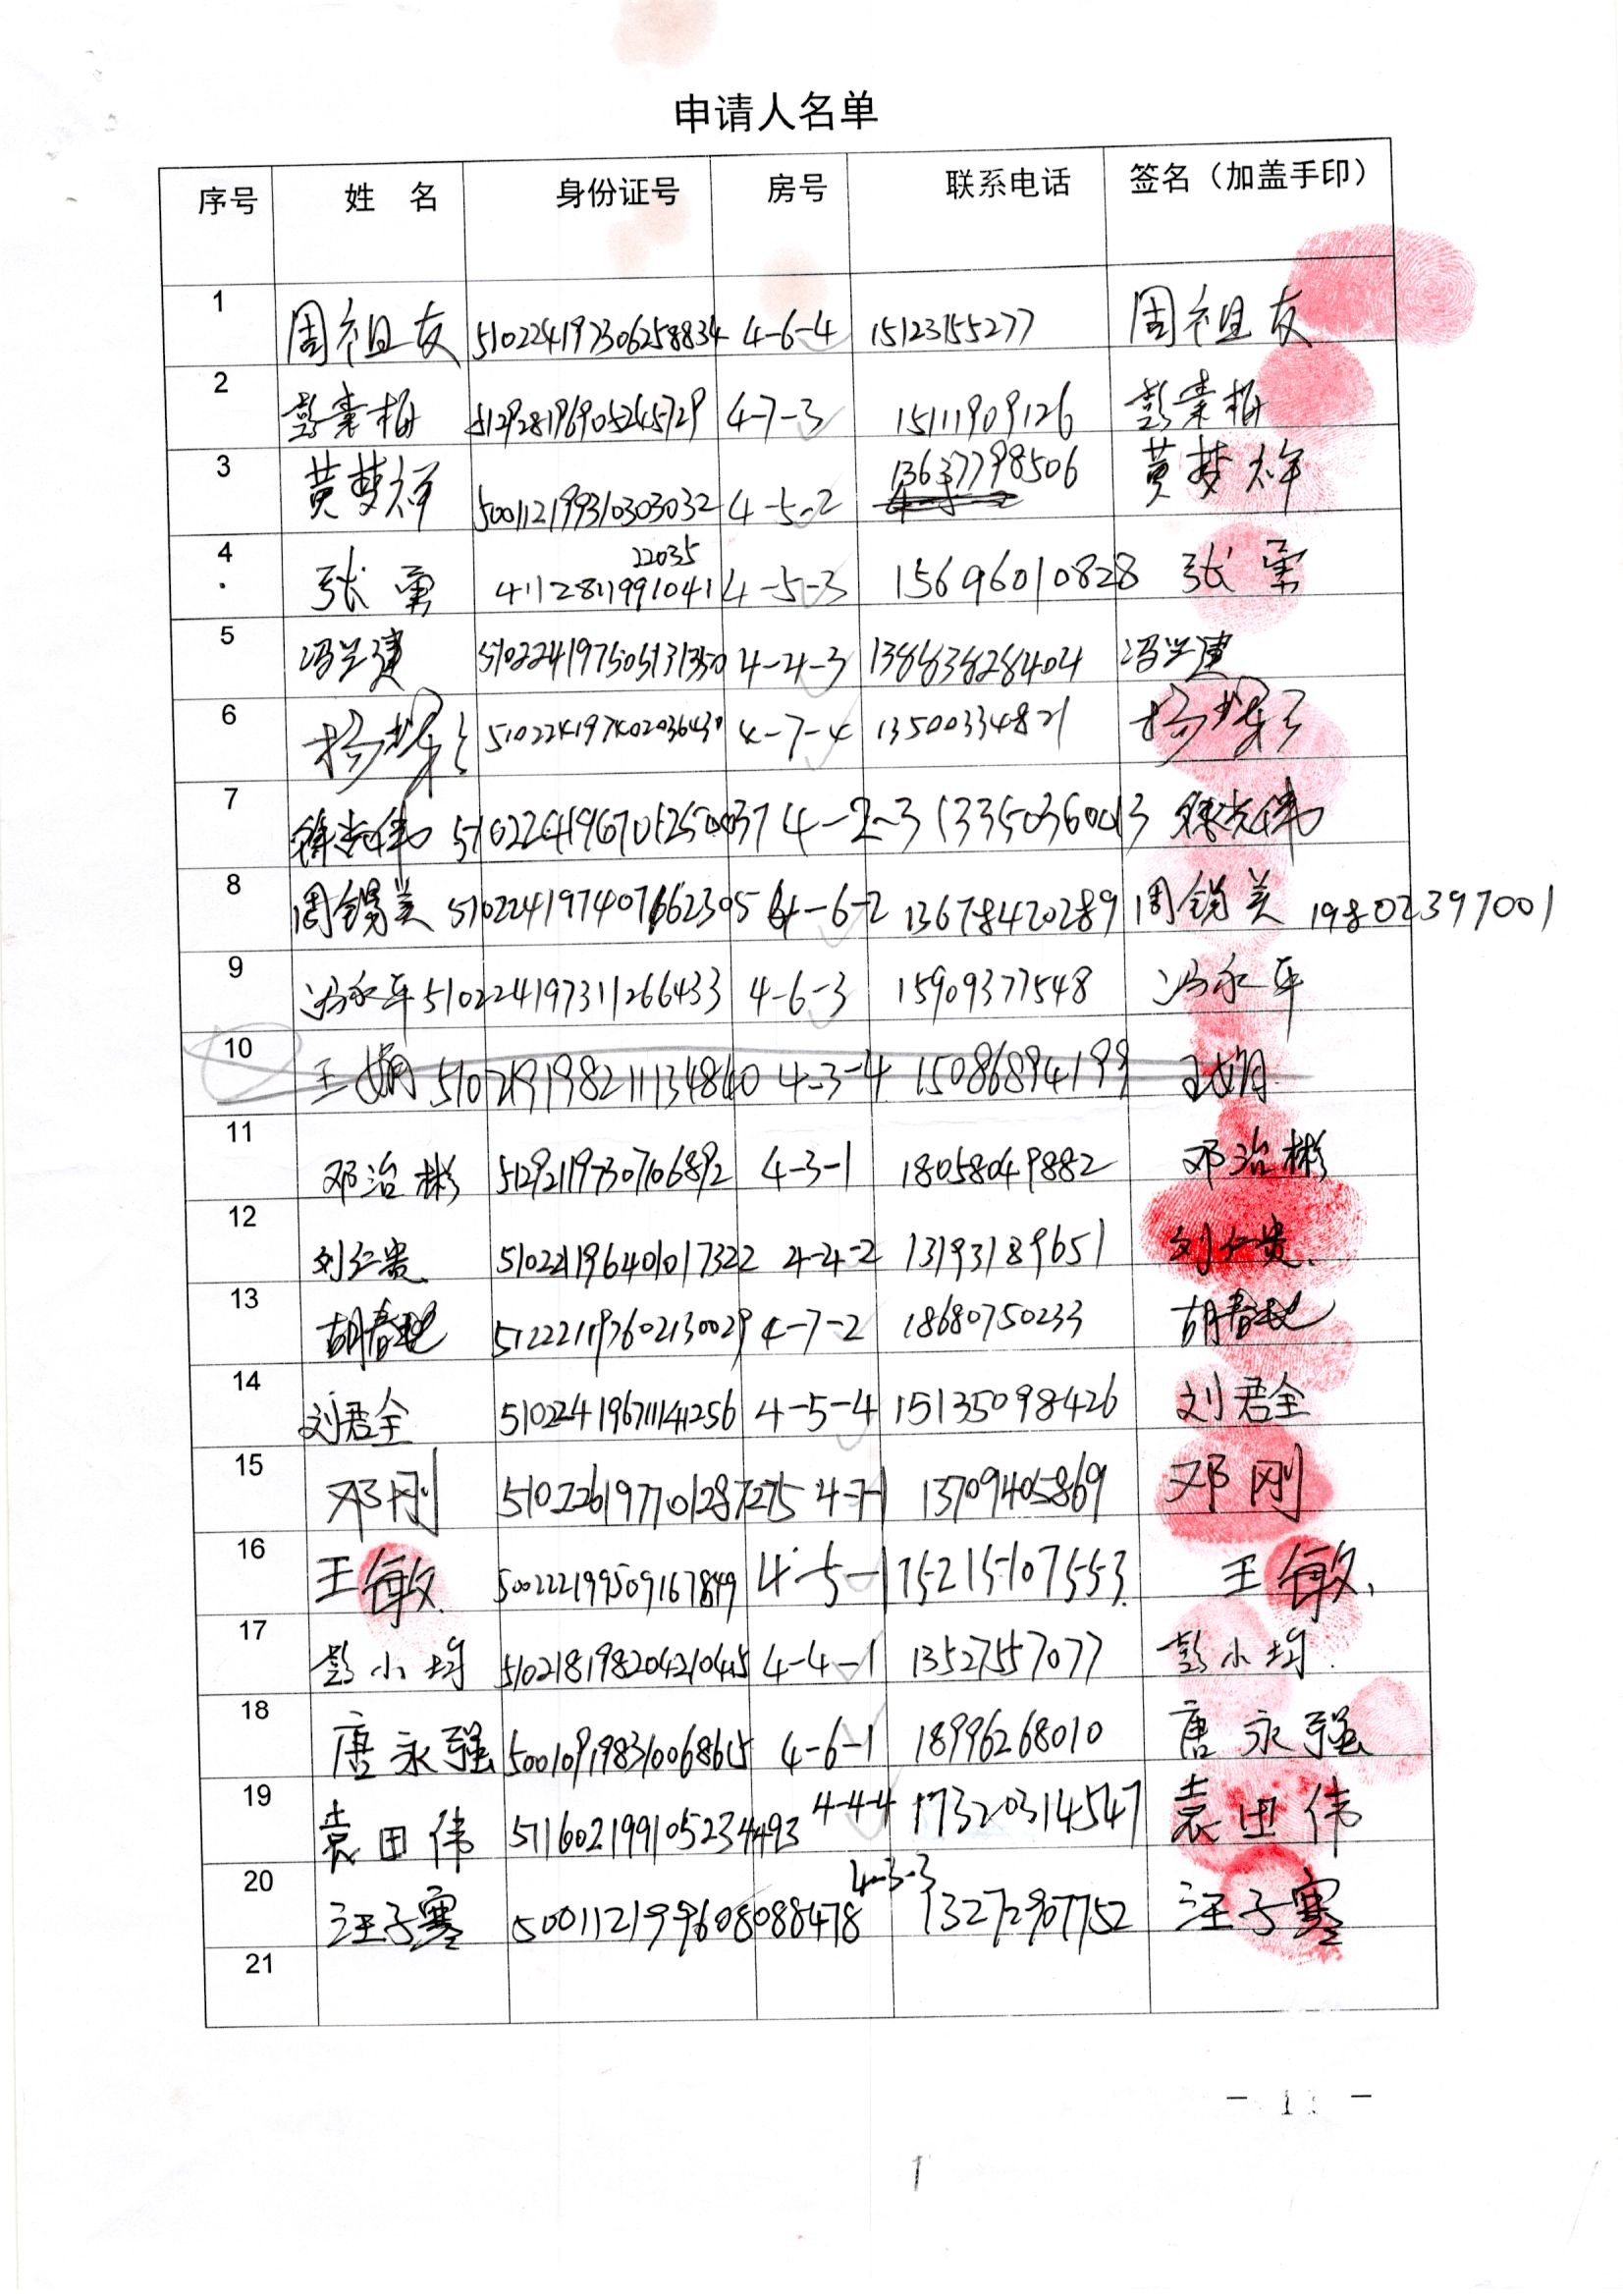 申请人名单
序号 姓 名 身份证号 房号 联系电话 签名（加盖手印）
1 周祖友 510224197306258834 4-6-4 15123155277 周祖友
2 彭素梅 512928196905245729 4-7-3 15111909126 彭素梅
3 黄梦祥 500112199310303032 4-5-2 13637798506 黄梦祥
22035
4 张勇 4112811991041 4-5-3 15696010828 张勇
5 冯兴建 510224197505131350 4-4-3 13863828404 冯兴建
6 杨 510224197402036430 4-7-4 13500334821 杨
7 510224196701250037 4-2-3 13350360013
8 周锡美 510224197407662305 4-6-2 13678420289 周锡美 19802397001
9 冯永平 510224197311266433 4-6-3 15909377548 冯永平
10 王娟 510219198211134840 4-3-4 15086894199 王娟
11 邓治彬 512921197307106892 4-3-1 18058049882 邓治彬
12 刘仁贵 510221196401017322 4-4-2 13193189651 刘仁贵
13 胡春艳 512221197602130029 4-7-2 18680750233 胡春艳
14 刘君全 510224196711141256 4-5-4 15135098426 刘君全
15 邓刚 510226197701287275 4-7-1 13709405869 邓刚
16 王敏 500222199509167849 4-5-1 15215107553 王敏
17 彭小均 510218198204210415 4-4-1 13527557077 彭小均
18 唐永强 500109198310068615 4-6-1 18996268010 唐永强
19 袁田伟 511602199105234493 4-4-4 17320314547 袁田伟
20 汪子骞 500112199608088478 4-3-3 13272907752 汪子骞
21
- 1 -
1